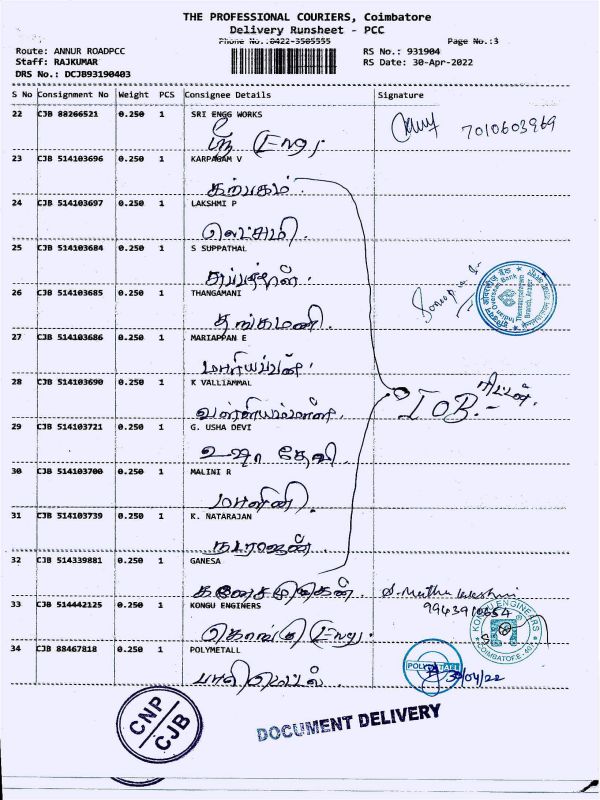 THE PROFESSIONAL COURIERS, Coimbatore
Delivery Runsheet - PCC
Phone No.:0422-3505555 Page No.:3
Route: ANNUR ROADPCC RS No.: 931904
Staff: RAJKUMAR RS Date: 30-Apr-2022
DRS No.: DCJB93190403
S No Consignment No Weight PCS Consignee Details Signature
22 CJB 88266521 0.250 1 SRI ENGG WORKS
ஸ்ரீ (Eng). 7010603969
23 CJB 514103696 0.250 1 KARPAGAM V
கற்பகம்.
24 CJB 514103697 0.250 1 LAKSHMI P
லெட்சுமி.
25 CJB 514103684 0.250 1 S SUPPATHAL
சுப்பத்தாள்.
26 CJB 514103685 0.250 1 THANGAMANI
தங்கமணி.
27 CJB 514103686 0.250 1 MARIAPPAN E
மாரியப்பன்.
28 CJB 514103690 0.250 1 K VALLIAMMAL
வள்ளியம்மாள். IOB.- ரிட்டன்.
29 CJB 514103721 0.250 1 G. USHA DEVI
உஷா தேவி.
30 CJB 514103700 0.250 1 MALINI R
மாலினி.
31 CJB 514103739 0.250 1 K. NATARAJAN
நடராஜன்.
32 CJB 514339881 0.250 1 GANESA
33 CJB 514442125 0.250 1 KONGU ENGINERS 9943910654
கொங்கு (Eng). KONGU ENGINEERS
34 CJB 88467818 0.250 1 POLYMETALL
பாலிமெட்டல். POLYMETALL 30/04/22
CNP
CJB
DOCUMENT DELIVERY